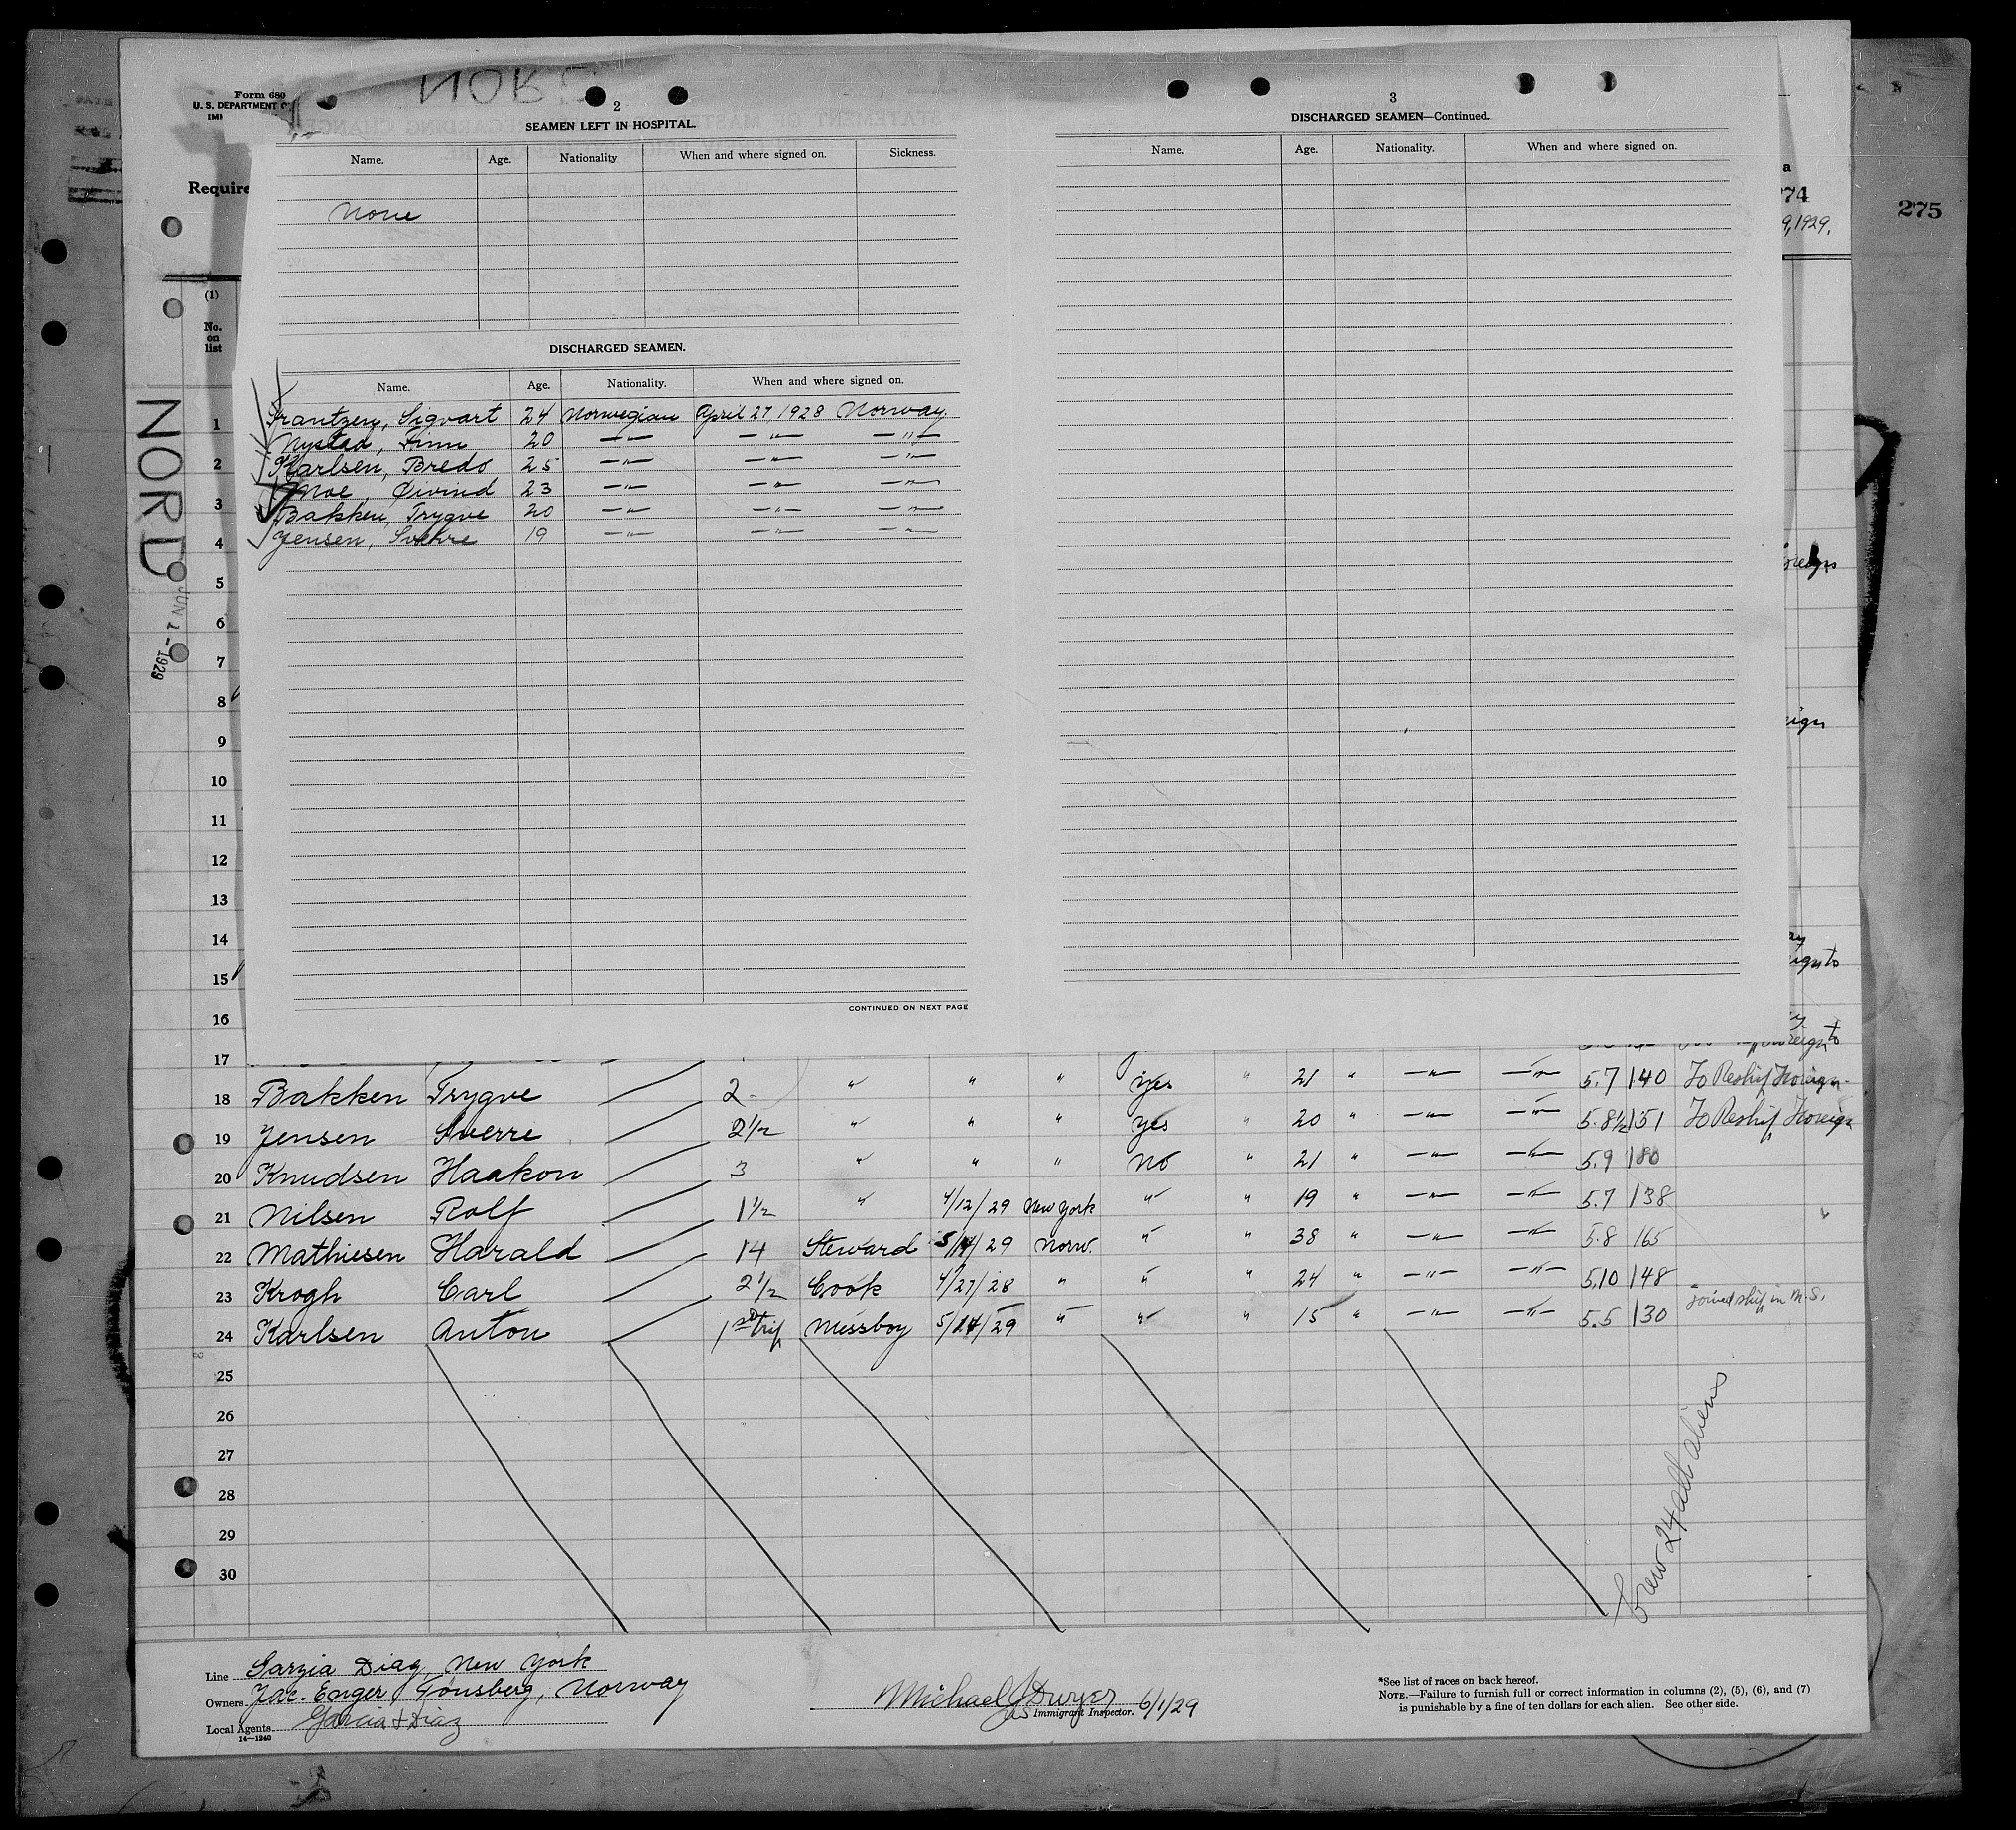 NORD
Form 680
U. S. DEPARTMENT O
IMI
Require
(1)
No.
on
list
NORD
JUN 1 1929
2
SEAMEN LEFT IN HOSPITAL.
Name. Age. Nationality When and where signed on. Sickness.
None
DISCHARGED SEAMEN.
Name. Age. Nationality. When and where signed on.
Frantzen, Sigvart 24 Norwegian April 27, 1928 Norway.
Nystad, Finn 20 —"— —"— —"—
Karlsen, Bredo 25 —"— —"— —"—
Moe, Øivind 23 —"— —"— —"—
Bakken, Trygve 20 —"— —"— —"—
Jensen, Sverre 19 —"— —"— —"—
CONTINUED ON NEXT PAGE
3
DISCHARGED SEAMEN—Continued.
Name. Age. Nationality. When and where signed on.
a
274
9, 1929.
275
1
2
3
4
5
6
7
8
9
10
11
12
13
14
15
16
17
18 Bakken Trygve 2 " " " yes " 21 " —"— —"— 5.7 140 To Reship Foreign
19 Jensen Sverre 2½ " " " yes " 20 " —"— —"— 5.8½ 151 To Reship Foreign
20 Knudsen Haakon 3 " " " no " 21 " —"— —"— 5.9 180
21 Nilsen Rolf 1½ " 4/12/29 New York " " 19 " —"— —"— 5.7 138
22 Mathiesen Harald 14 Steward 5/14/29 Norw. " " 38 " —"— —"— 5.8 165
23 Krogh Carl 2½ Cook 4/27/28 " " " 24 " —"— —"— 5.10 148
24 Karlsen Anton 1st trip Messboy 5/14/29 " " " 15 " —"— —"— 5.5 130 joined ship in M.S.
25
26
27
28
29
30
Crew 24 all aliens
Line Garzia Diaz, New York
Owners Jac. Enger, Tønsberg, Norway
Local Agents Garcia & Diaz
14—1240
Michael J Dwyer 6/1/29
Immigrant Inspector.
*See list of races on back hereof.
NOTE.—Failure to furnish full or correct information in columns (2), (5), (6), and (7)
is punishable by a fine of ten dollars for each alien. See other side.